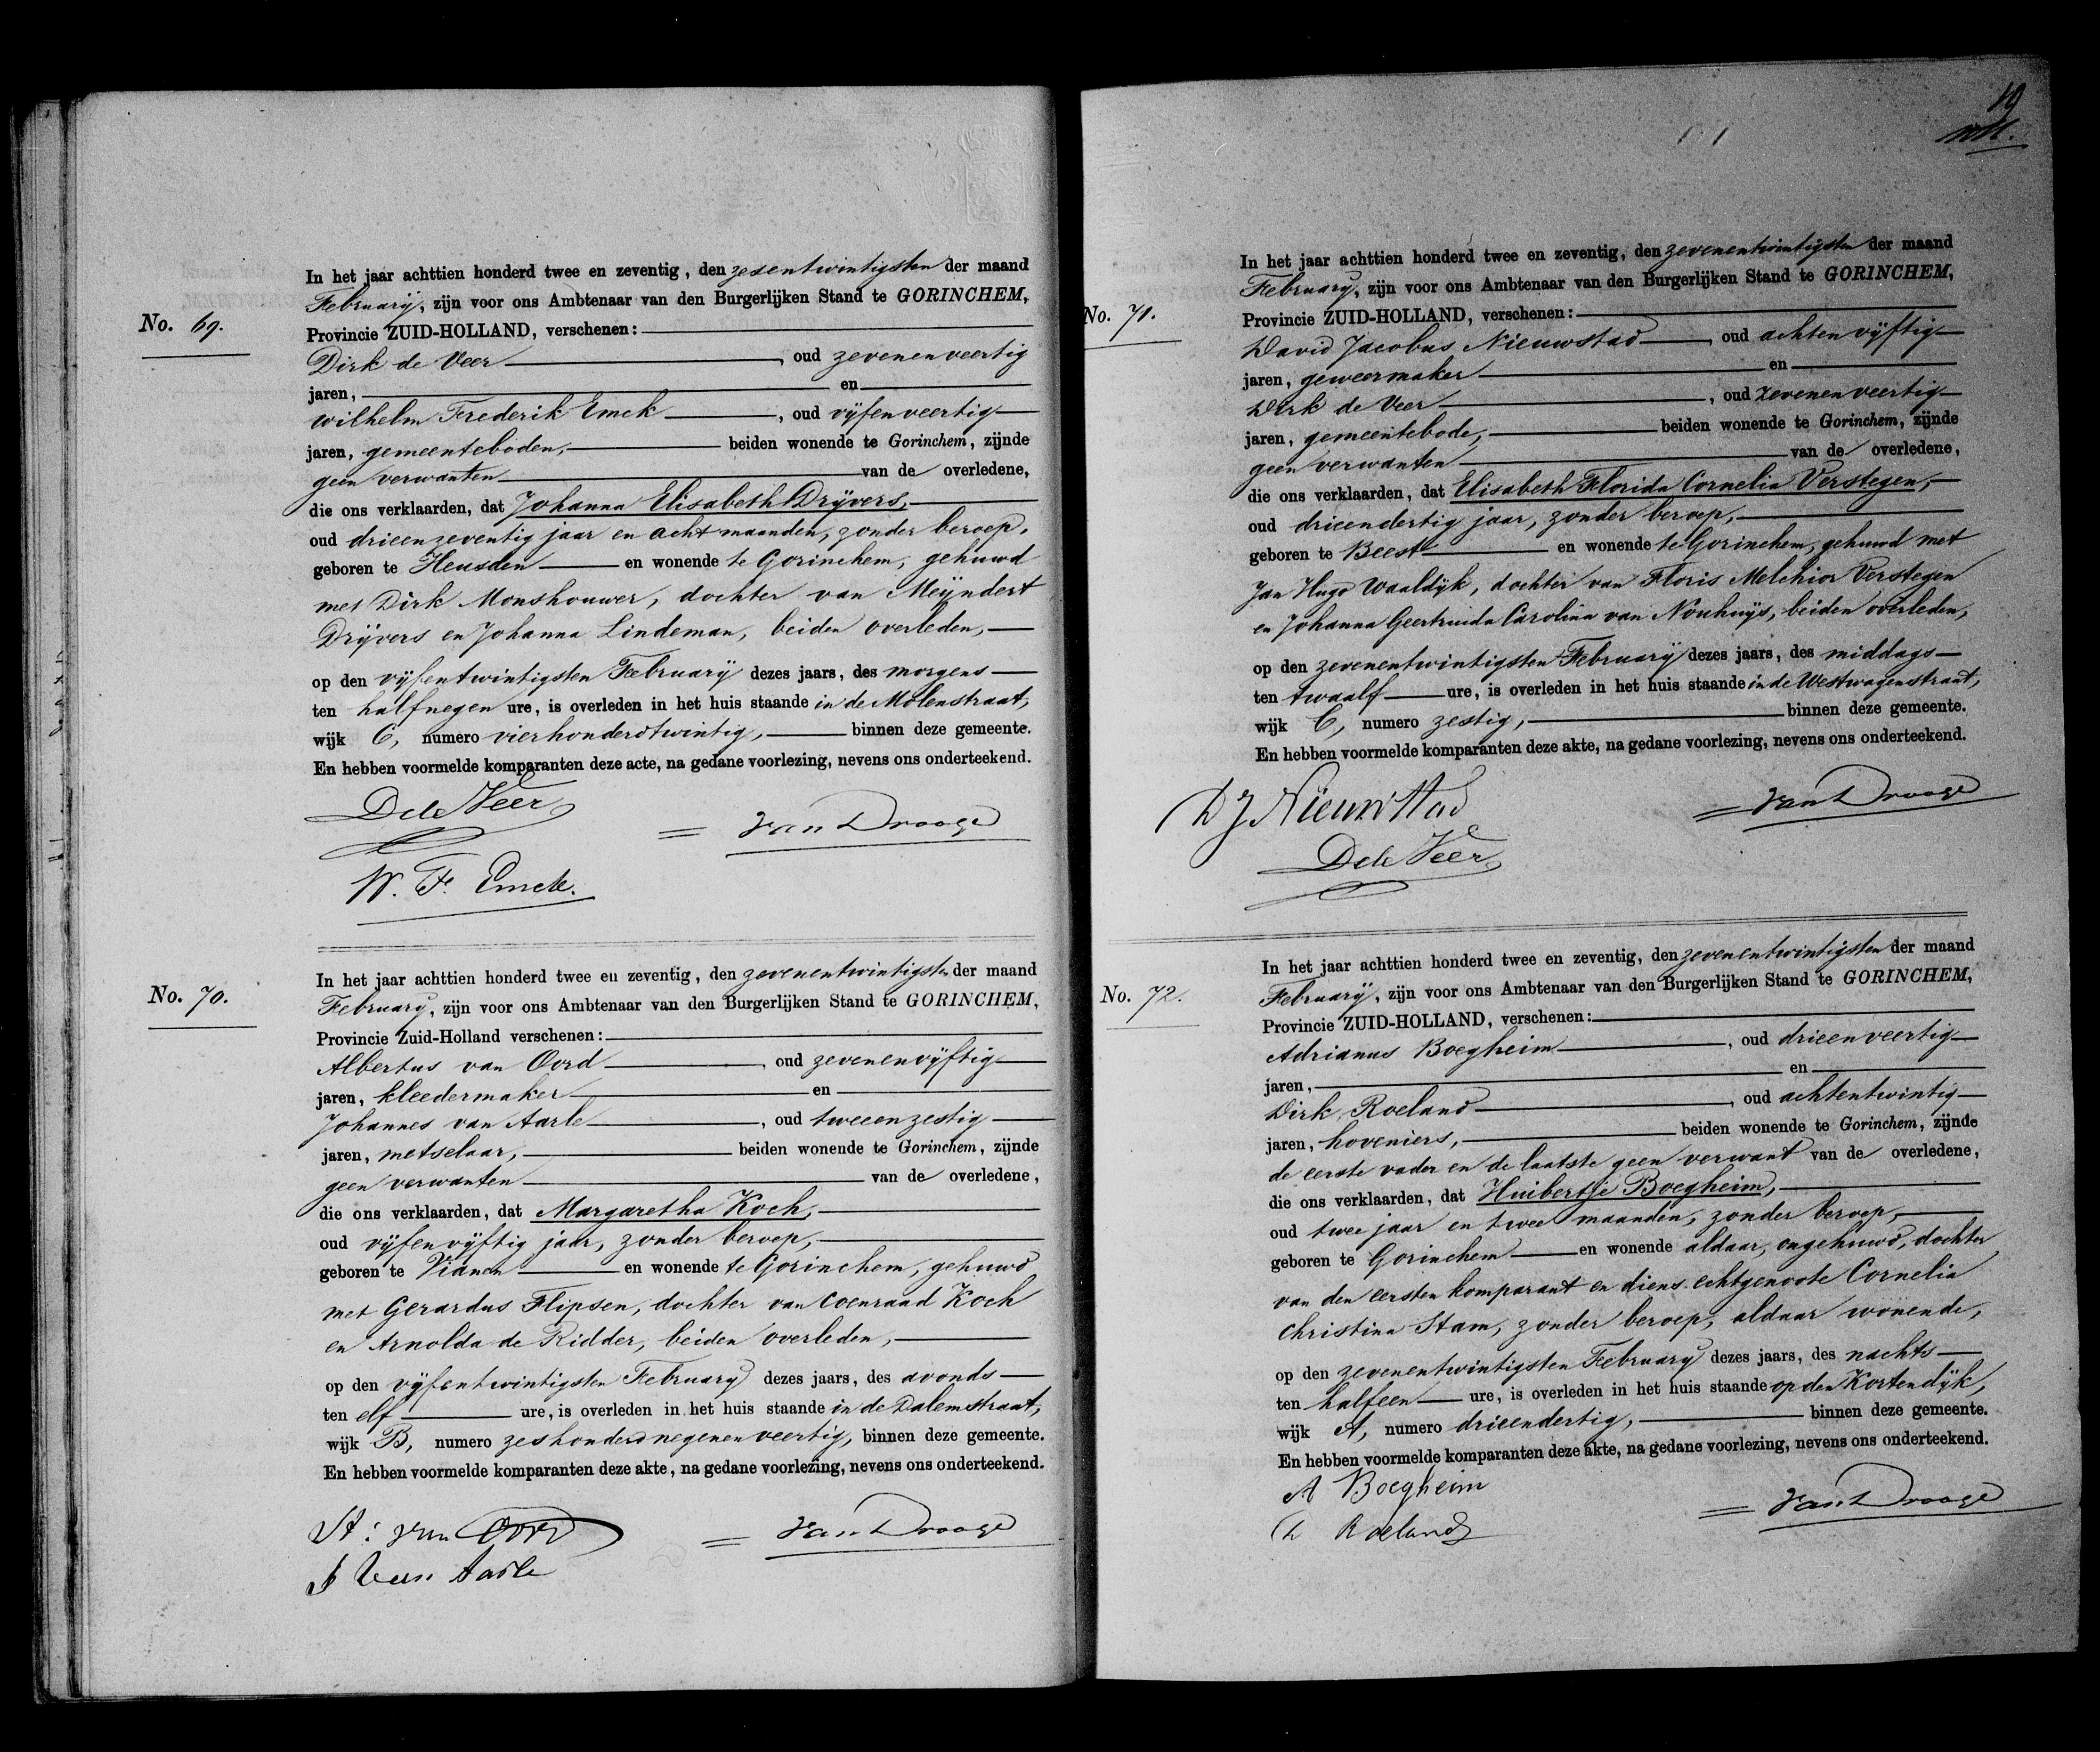 No. 69.
In het jaar achttien honderd twee en zeventig, den zesentwintigsten der maand
Februarij, zijn voor ons Ambtenaar van den Burgerlijken Stand te GORINCHEM,
Provincie ZUID-HOLLAND, verschenen:
Dirk de Veer, oud zevenenveertig
jaren, en
Wilhelm Frederik Emck, oud vijfenveertig
jaren, gemeenteboden, beiden wonende te Gorinchem, zijnde
geen verwanten van de overledene,
die ons verklaarden, dat Johanna Elisabeth Drijvers,
oud drieenzeventig jaar en acht maanden, zonder beroep,
geboren te Heusden en wonende te Gorinchem, gehuwd
met Dirk Monshouwer, dochter van Meijndert
Drijvers en Johanna Lindeman, beiden overleden,
op den vijfentwintigsten Februarij dezes jaars, des morgens
ten halfnegen ure, is overleden in het huis staande in de Molenstraat,
wijk C, numero vierhonderdtwintig, binnen deze gemeente.
En hebben voormelde komparanten deze acte, na gedane voorlezing, nevens ons onderteekend.
D de Veer
Van Drooge
W. F. Emck.
No. 70.
In het jaar achttien honderd twee en zeventig, den zevenentwintigsten der maand
Februarij, zijn voor ons Ambtenaar van den Burgerlijken Stand te GORINCHEM,
Provincie Zuid-Holland verschenen:
Albertus van Oord, oud zevenenvijftig
jaren, kleedermaker en
Johannes van Aarle, oud tweeenzestig
jaren, metselaar, beiden wonende te Gorinchem, zijnde
geen verwanten van de overledene,
die ons verklaarden, dat Margaretha Koch,
oud vijfenvijftig jaar, zonder beroep,
geboren te Vianen en wonende te Gorinchem, gehuwd
met Gerardus Flipsen, dochter van Coenraad Koch
en Arnolda de Ridder, beiden overleden,
op den vijfentwintigsten Februarij dezes jaars, des avonds
ten elf ure, is overleden in het huis staande in de Dalemstraat,
wijk B, numero zeshonderdnegenenveertig, binnen deze gemeente.
En hebben voormelde komparanten deze akte, na gedane voorlezing, nevens ons onderteekend.
A: van Oord
Van Drooge
J Van Aarle
19
No. 71.
In het jaar achttien honderd twee en zeventig, den zevenentwintigsten der maand
Februarij, zijn voor ons Ambtenaar van den Burgerlijken Stand te GORINCHEM,
Provincie ZUID-HOLLAND, verschenen:
David Jacobus Nieuwstad, oud achtenvijftig
jaren, geweermaker en
Dirk de Veer, oud zevenenveertig
jaren, gemeentebode, beiden wonende te Gorinchem, zijnde
geen verwanten van de overledene,
die ons verklaarden, dat Elisabeth Florida Cornelia Verstegen,
oud drieendertig jaar, zonder beroep,
geboren te Beest en wonende te Gorinchem, gehuwd met
Jan Hugo Waaldijk, dochter van Floris Melchior Verstegen
en Johanna Geertruida Carolina van Nouhuijs, beiden overleden,
op den zevenentwintigsten Februarij dezes jaars, des middags
ten twaalf ure, is overleden in het huis staande in de Westwagenstraat,
wijk C, numero zestig, binnen deze gemeente.
En hebben voormelde komparanten deze akte, na gedane voorlezing, nevens ons onderteekend.
D J Nieuwstad
Van Drooge
D de Veer
No. 72.
In het jaar achttien honderd twee en zeventig, den zevenentwintigsten der maand
Februarij, zijn voor ons Ambtenaar van den Burgerlijken Stand te GORINCHEM,
Provincie ZUID-HOLLAND, verschenen:
Adrianus Boegheim, oud drieenveertig
jaren, en
Dirk Roeland, oud achtentwintig
jaren, hoveniers, beiden wonende te Gorinchem, zijnde
de eerste vader en de laatste geen verwant van de overledene,
die ons verklaarden, dat Huibertje Boegheim,
oud twee jaar en twee maanden, zonder beroep,
geboren te Gorinchem en wonende aldaar, ongehuwd, dochter
van den eersten komparant en diens echtgenoote Cornelia
Christina Stam, zonder beroep, aldaar wonende,
op den zevenentwintigsten Februarij dezes jaars, des nachts
ten halfeen ure, is overleden in het huis staande op den Kortendijk,
wijk A, numero drieendertig, binnen deze gemeente.
En hebben voormelde komparanten deze akte, na gedane voorlezing, nevens ons onderteekend.
A Boegheim
Van Drooge
D Roeland